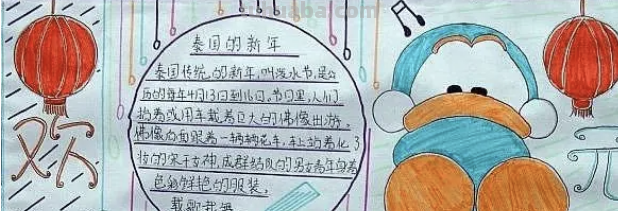 泰国的新年
泰国传统的新年,叫泼水节,是公
历的每年4月13日到16日,节日里,人们
抬着或用车载着巨大的佛像出游,
佛像后面跟着一辆辆花车,车上站着化
妆的宋干女神,成群结队的男女青年身着
色彩鲜艳的服装,
载歌载舞
欢
元